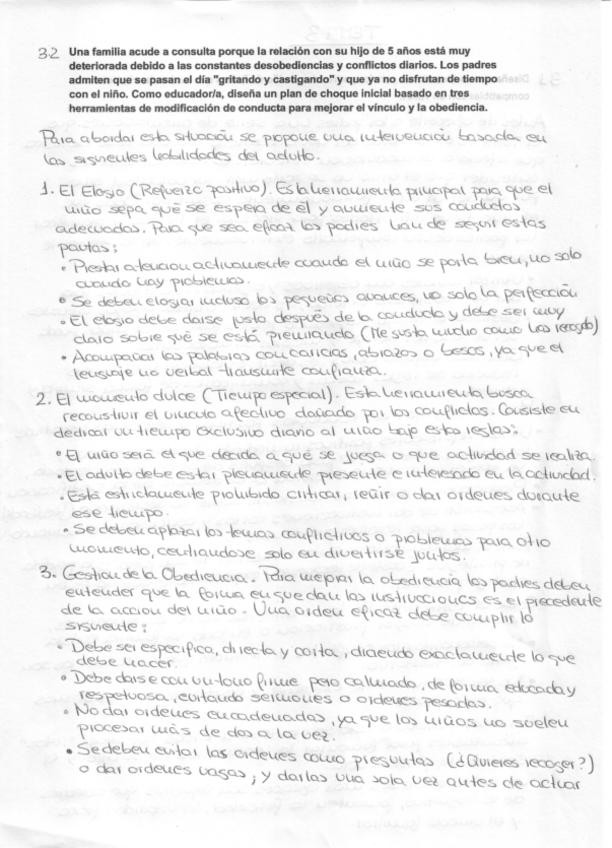 3.2 Una familia acude a consulta porque la relación con su hijo de 5 años está muy
deteriorada debido a las constantes desobediencias y conflictos diarios. Los padres
admiten que se pasan el día "gritando y castigando" y que ya no disfrutan de tiempo
con el niño. Como educador/a, diseña un plan de choque inicial basado en tres
herramientas de modificación de conducta para mejorar el vínculo y la obediencia.
Para abordar esta situación se propone una intervención basada en
las siguientes habilidades del adulto.
1. El Elogio (Refuerzo positivo). Esta herramienta principal para que el
niño sepa qué se espera de él y aumente sus conductas
adecuadas. Para que sea eficaz los padres han de seguir estas
pautas:
• Prestar atención activamente cuando el niño se porta bien, no solo
cuando hay problemas.
• Se deben elogiar incluso los pequeños avances, no solo la perfección
• El elogio debe darse justo después de la conducta y debe ser muy
claro sobre qué se está premiando (Me gusta mucho como has recogido)
• Acompañar las palabras con caricias, abrazos o besos, ya que el
lenguaje no verbal transmite confianza.
2. El momento dulce (Tiempo especial). Esta herramienta busca
reconstruir el vínculo afectivo dañado por los conflictos. Consiste en
dedicar un tiempo exclusivo diario al niño bajo estas reglas:
• El niño será el que decida a qué se juega o que actividad se realiza.
• El adulto debe estar plenamente presente e interesado en la actividad.
• Está estrictamente prohibido criticar, reñir o dar ordenes durante
ese tiempo.
• Se deben aplazar los temas conflictivos o problemas para otro
momento, centrandose solo en divertirse juntos.
3. Gestion de la Obediencia. Para mejorar la obediencia los padres deben
entender que la forma en que dan las instrucciones es el precedente
de la accion del niño. Una orden eficaz debe cumplir lo
siguiente:
• Debe ser especifica, directa y corta, diciendo exactamente lo que
debe hacer.
• Debe darse con un tono firme pero calmado, de forma educada y
respetuosa, evitando sermones o ordenes pesadas.
• No dar ordenes encadenadas, ya que los niños no suelen
procesar más de dos a la vez.
• Se deben evitar las ordenes como preguntas (¿Quieres recoger?)
o dar ordenes vagas; y darlas una sola vez antes de actuar